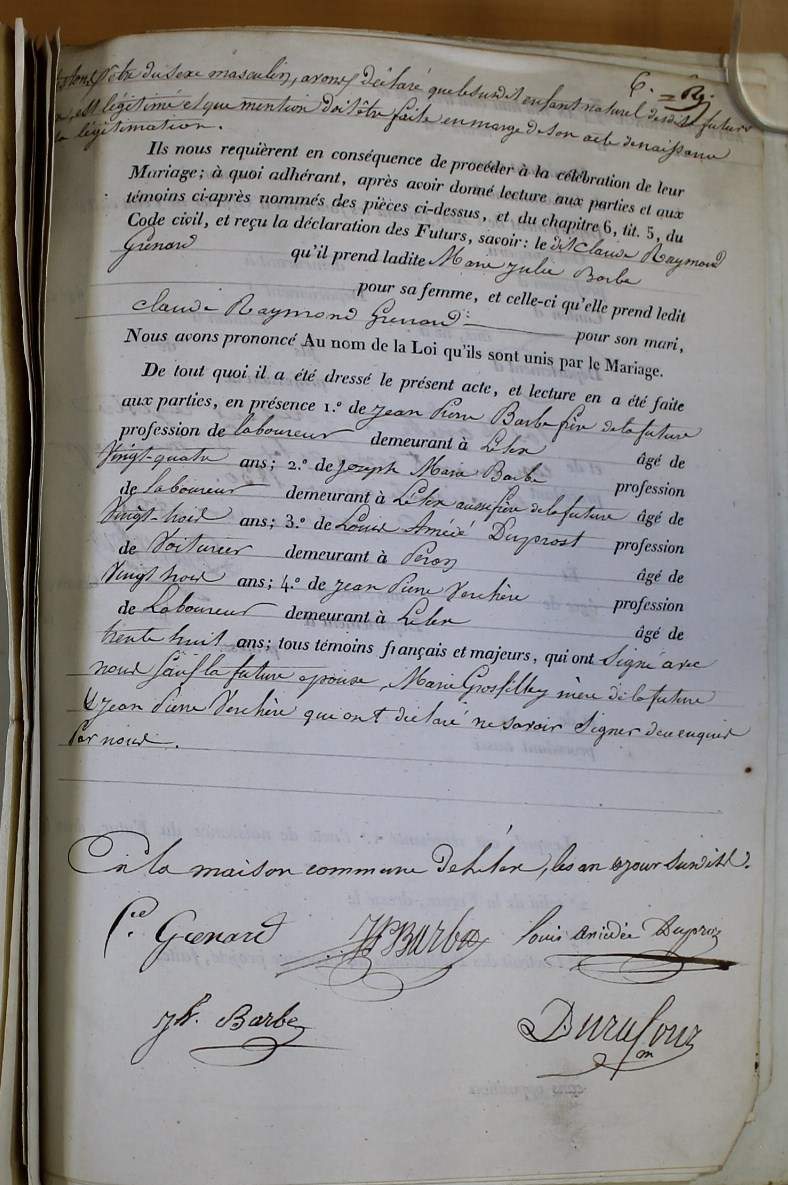 être du sexe masculin, avons déclaré que le susdit enfant naturel desdits futurs
est légitimé et que mention doit être faite en marge de son acte de naissance
la légitimation.
Ils nous requièrent en conséquence de procéder à la célébration de leur
Mariage; à quoi adhérant, après avoir donné lecture aux parties et aux
témoins ci-après nommés des pièces ci-dessus, et du chapitre 6, tit. 5, du
Code civil, et reçu la déclaration des Futurs, savoir: le dit Claude Raymond
Grenard qu'il prend ladite Marie Julie Barbe
pour sa femme, et celle-ci qu'elle prend ledit
Claude Raymond Grenard pour son mari,
Nous avons prononcé Au nom de la Loi qu'ils sont unis par le Mariage.
De tout quoi il a été dressé le présent acte, et lecture en a été faite
aux parties, en présence 1.º de Jean Pierre Barbe frère de la future
profession de laboureur demeurant à Lélex âgé de
Vingt-quatre ans; 2.º de Joseph Marie Barbe profession
de laboureur demeurant à Lélex aussi frère de la future âgé de
Vingt-trois ans; 3.º de Louis Amédé Duprost profession
de Voiturier demeurant à Péron âgé de
Vingt trois ans; 4.º de Jean Pierre Verchère profession
de Laboureur demeurant à Lélex âgé de
trente huit ans; tous témoins français et majeurs, qui ont Signé avec
nous sauf la future epouse, Marie Grosfilley mère de la future
& Jean Pierre Verchère qui ont declaré ne savoir Signer de ce enquis
Par nous.
En la maison commune de Lélex, les an & jour susdits.
Grenard JP Barbe Louis Amédée Duproz
Jh. Barbe Durafour